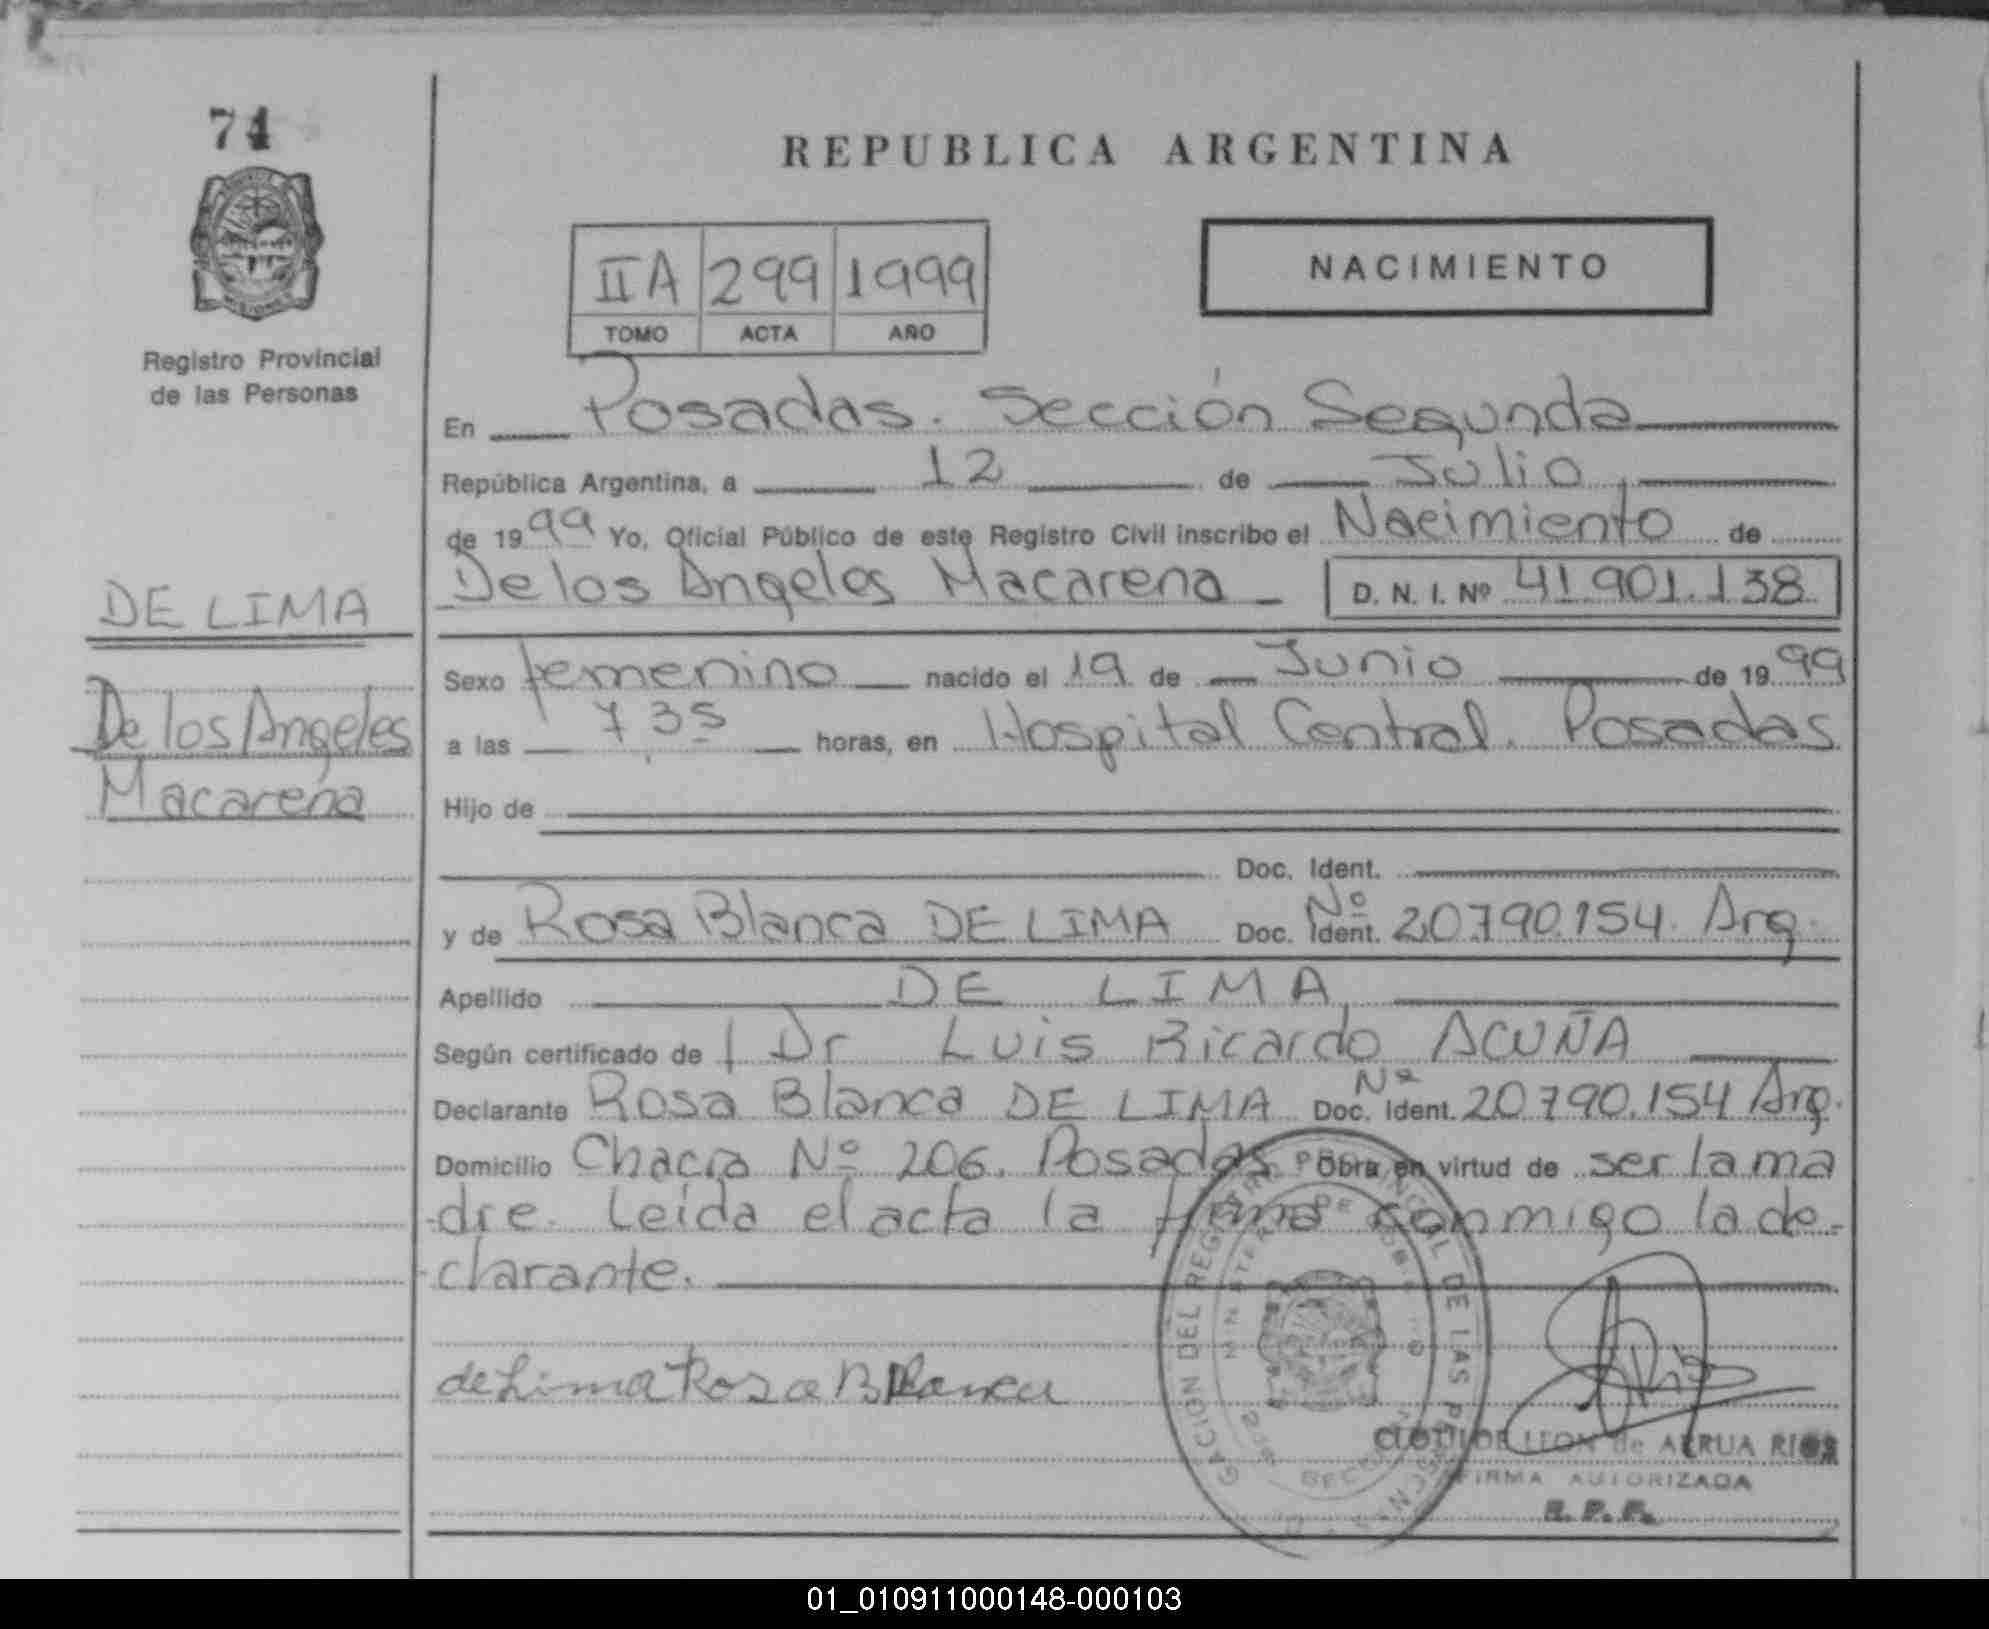 74
REPUBLICA ARGENTINA
IIA 299 1999
TOMO ACTA AÑO
NACIMIENTO
Registro Provincial
de las Personas
En Posadas. Sección Segunda
República Argentina, a 12 de Julio
de 1999 Yo, Oficial Público de este Registro Civil inscribo el Nacimiento de
De los Angeles Macarena D. N. I. Nº 41.901.138
DE LIMA
De los Angeles
Macarena
Sexo femenino nacido el 19 de Junio de 1999
a las 7,35 horas, en Hospital Central. Posadas
Hijo de
Doc. Ident.
y de Rosa Blanca DE LIMA Doc. Ident. Nº 20.790.154. Arg.
Apellido DE LIMA
Según certificado de Dr Luis Ricardo ACUÑA
Declarante Rosa Blanca DE LIMA Doc. Ident. Nº 20.790.154 Arg.
Domicilio Chacra Nº 206. Posadas Obra en virtud de ser la ma
dre. Leída el acta la firma conmigo la de-
clarante.
de Lima Rosa Blanca
CLOTILDE LEON de ARRUA RIOS
FIRMA AUTORIZADA
R. P. P.
01_010911000148-000103